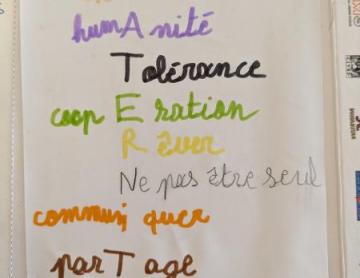 humAnité
Tolérance
coopEration
Rêver
Ne pas être seul
communiquer
parTage